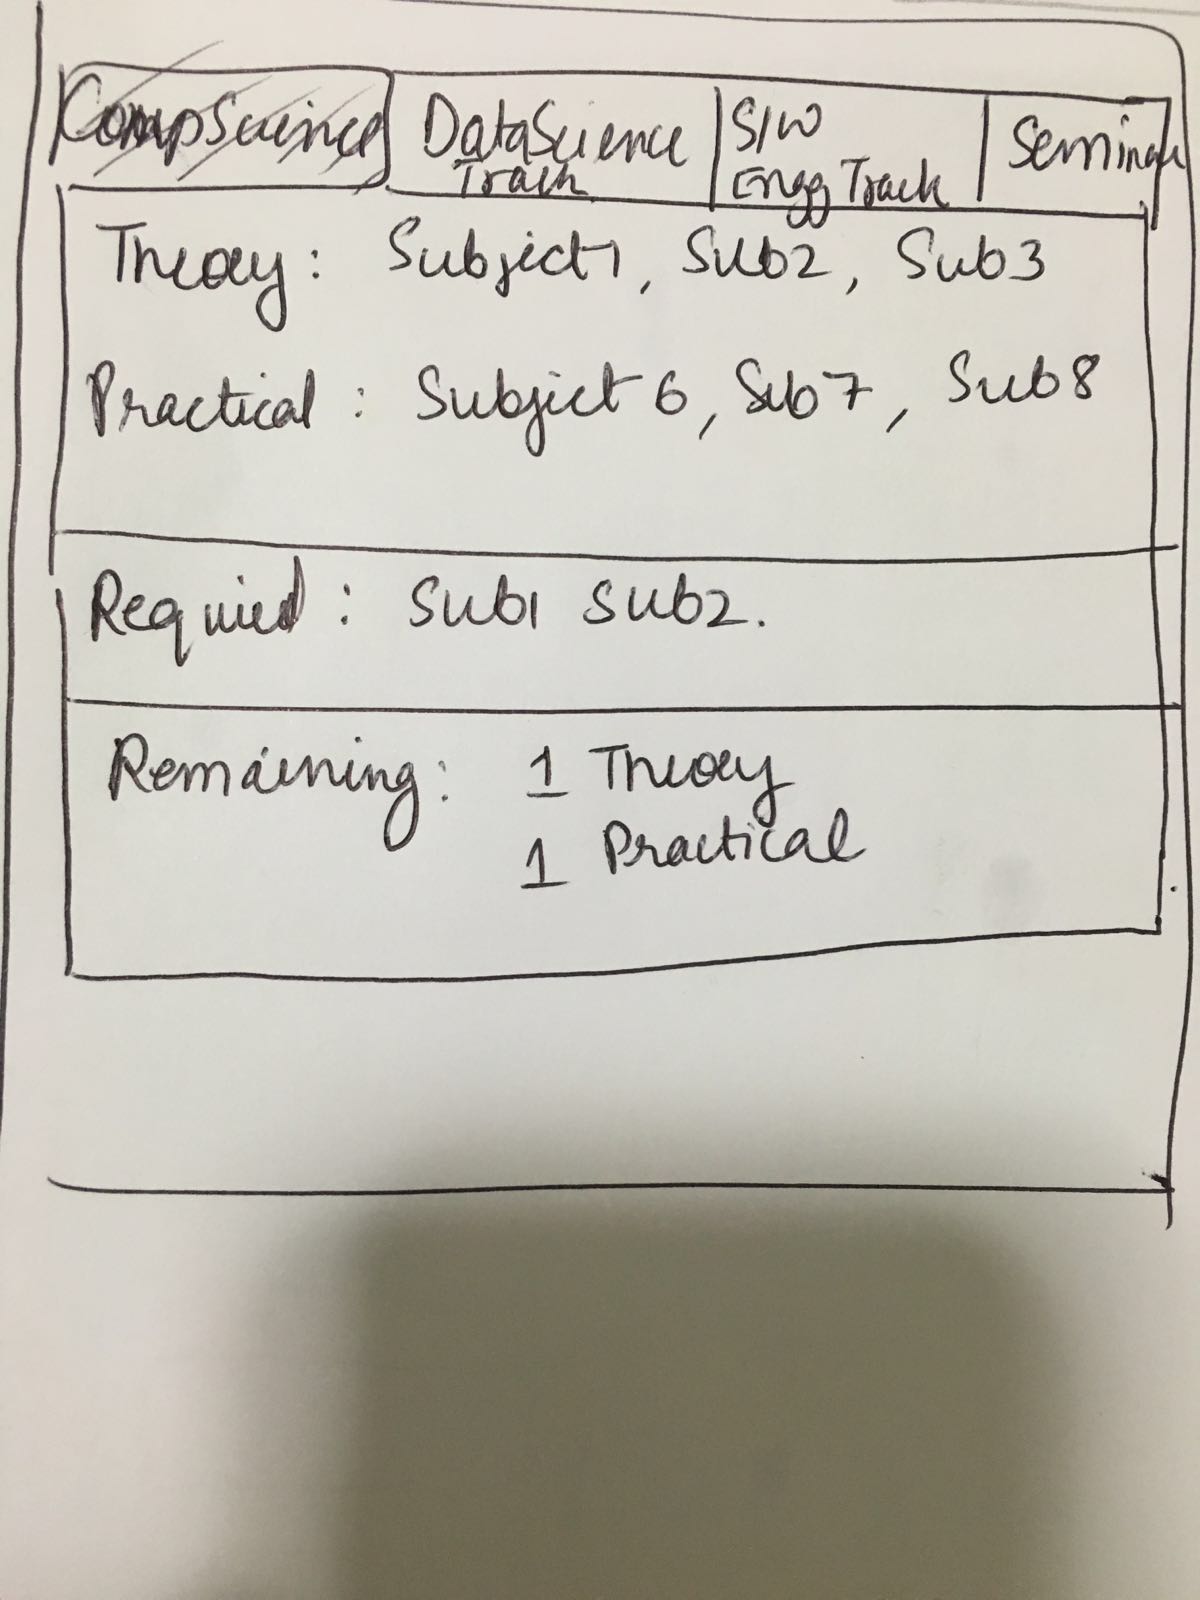 CompScience
DataScience
Track
S/W
Engg Track
Seminar
Theory: Subject1, Sub2, Sub3
Practical: Subject 6, Sub7, Sub8
Required: Sub1 Sub2.
Remaining: 1 Theory
1 Practical